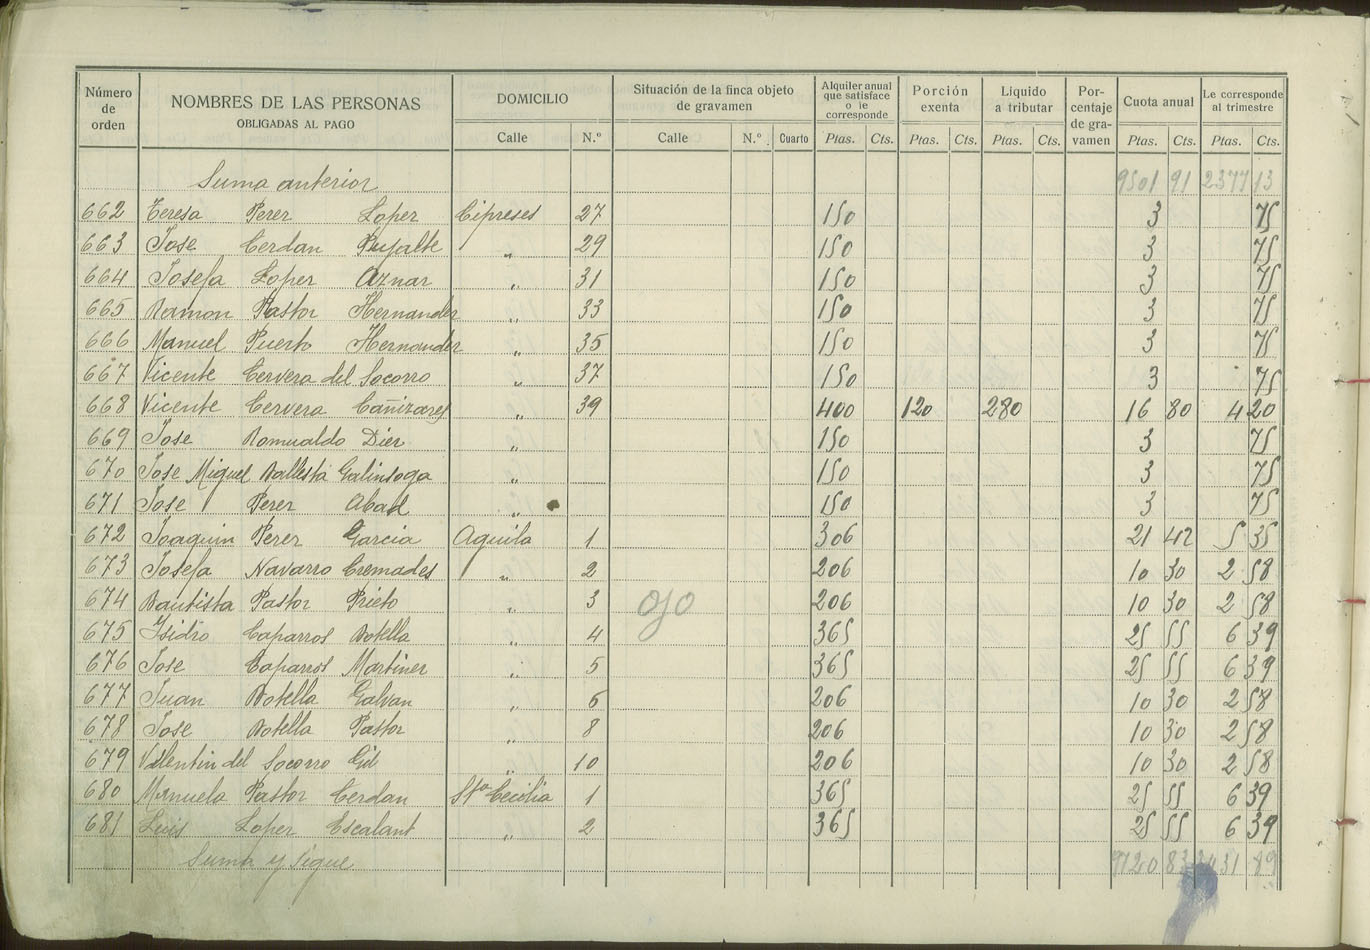 Número de orden NOMBRES DE LAS PERSONAS OBLIGADAS AL PAGO DOMICILIO Situación de la finca objeto de gravamen Alquiler anual que satisface o le corresponde Porción exenta Liquido a tributar Por-centaje de gra-vamen Cuota anual Le corresponde al trimestre
Calle N.º Calle N.º Cuarto Ptas. Cts. Ptas. Cts. Ptas. Cts. Ptas. Cts. Ptas. Cts.
Suma anterior 9501 91 2377 13
662 Teresa Perez Lopez Cipreses 27 150 3 75
663 Jose Cerdan Pujalte " 29 150 3 75
664 Josefa Lopez Aznar " 31 150 3 75
665 Ramon Pastor Hernandez " 33 150 3 75
666 Manuel Puerto Hernandez " 35 150 3 75
667 Vicente Cervera del Socorro " 37 150 3 75
668 Vicente Cervera Cañizares " 39 400 120 280 16 80 4 20
669 Jose Romualdo Diez " 150 3 75
670 Jose Miguel Ballesta Galinsoga " 150 3 75
671 Jose Perez Abad " 150 3 75
672 Joaquin Perez Garcia Aguila 1 306 21 42 5 35
673 Josefa Navarro Cremades " 2 206 10 30 2 58
674 Bautista Pastor Prieto " 3 ojo 206 10 30 2 58
675 Isidro Caparros Botella " 4 365 25 55 6 39
676 Jose Caparros Martinez " 5 365 25 55 6 39
677 Juan Botella Galvan " 6 206 10 30 2 58
678 Jose Botella Pastor " 8 206 10 30 2 58
679 Valentin del Socorro Gil " 10 206 10 30 2 58
680 Manuela Pastor Cerdan Sta Cecilia 1 365 25 55 6 39
681 Luis Lopez Escalant " 2 365 25 55 6 39
Suma y sigue 9720 83 89